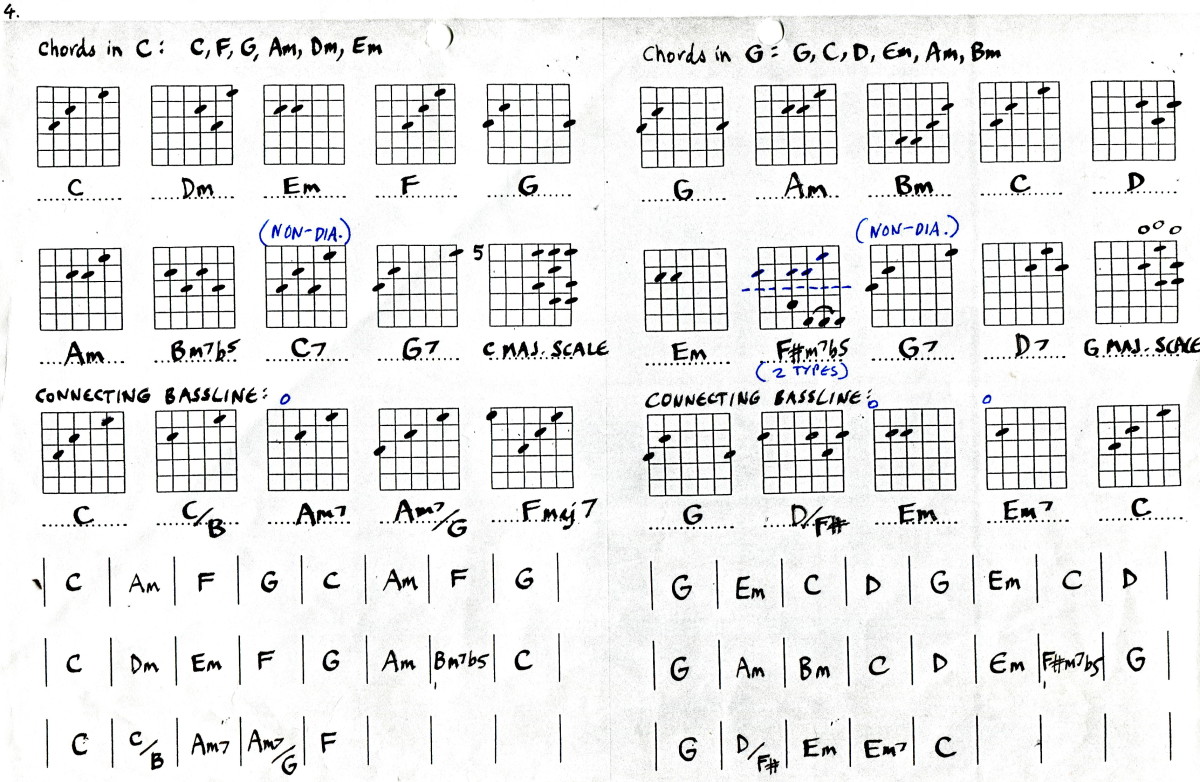 4.
Chords in C: C, F, G, Am, Dm, Em
C Dm Em F G
(NON-DIA.)
5
Am Bm7b5 C7 G7 C MAJ. SCALE
CONNECTING BASSLINE: o
C C/B Am7 Am7/G Fmaj7
C Am F G C Am F G
C Dm Em F G Am Bm7b5 C
C C/B Am7 Am7/G F
Chords in G: G, C, D, Em, Am, Bm
G Am Bm C D
(NON-DIA.) o o o
Em F#m7b5 G7 D7 G MAJ. SCALE
(2 TYPES)
CONNECTING BASSLINE: o o
G D/F# Em Em7 C
G Em C D G Em C D
G Am Bm C D Em F#m7b5 G
G D/F# Em Em7 C